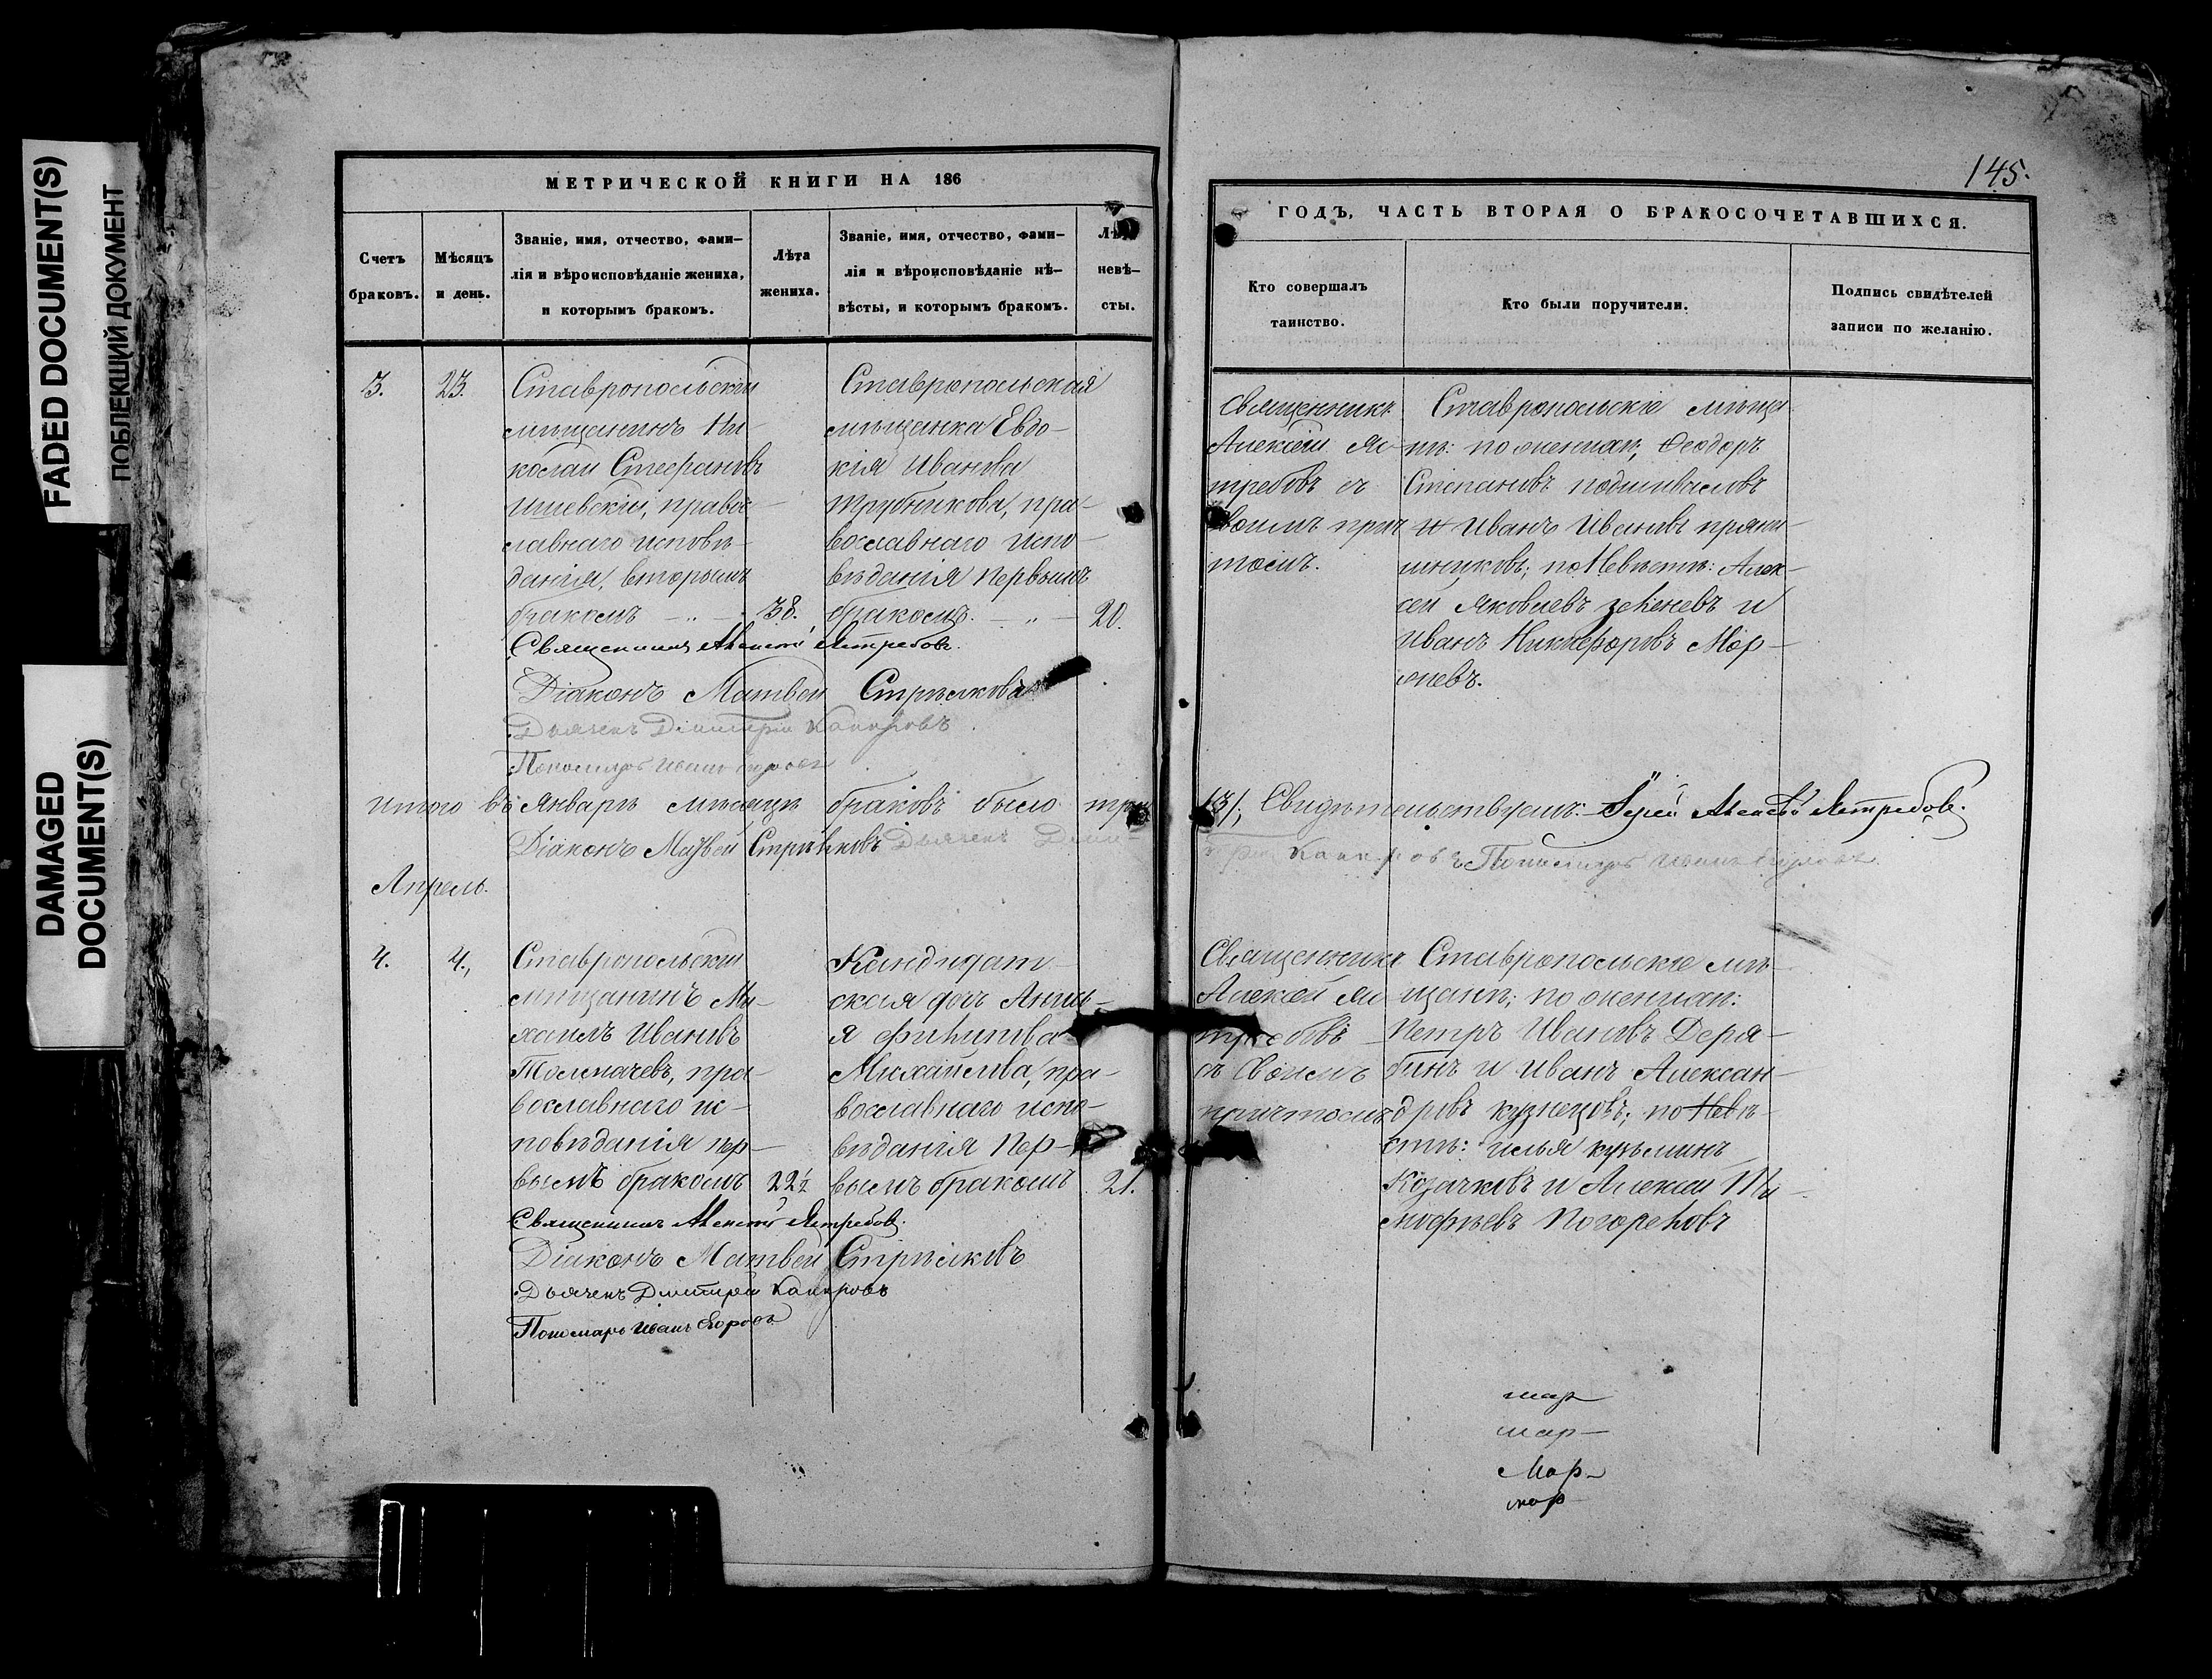 FADED DOCUMENT(S)
ПОБЛЕКЩИЙ ДОКУМЕНТ
DAMAGED
DOCUMENT(S)
МЕТРИЧЕСКОЙ КНИГИ НА 186
Счетъ
браковъ.
Мѣсяцъ
и день.
Званіе, имя, отчество, фами-
лія и вѣроисповѣданіе жениха,
и которымъ бракомъ.
Лѣта
жениха.
Званіе, имя, отчество, фами-
лія и вѣроисповѣданіе не-
вѣсты, и которымъ бракомъ.
невѣ-
сты.
3.
23.
Ставропольскій
мѣщанинъ Ни-
колай Стефановъ
правос-
лавнаго исповѣ-
данія, вторымъ
бракомъ
38.
Ставропольская
мѣщанка Евдо-
кія Иванова
Трубникова, пра-
вославнаго испо-
вѣданія первымъ
бракомъ.
20.
Священникъ Алексій Ястребовъ.
Діаконъ Матвей Стрѣлковъ
Дьячекъ Димитрій
Пономарь Иванъ
Итого въ Январѣ мѣсяцѣ браковъ было три
Діаконъ Матвей Стрѣлковъ Дьячекъ Дими
Апрель.
4.
4.,
Ставропольскій
мѣщанинъ Ми-
хаилъ Ивановъ
Толмачевъ, пра-
вославнаго ис-
повѣданія пер-
вымъ бракомъ
22½
Кандидат-
ская дочь
Филипова
Михайлова, пра-
вославнаго испо-
вѣданія Пер-
вымъ бракомъ
21.
Священникъ Алексій Ястребовъ.
Діаконъ Матвей Стрѣлковъ
Дьячекъ Дмитрій
Пономарь Иванъ
145.
ГОДЪ, ЧАСТЬ ВТОРАЯ О БРАКОСОЧЕТАВШИХСЯ.
Кто совершалъ
таинство.
Кто были поручители.
Подпись свидѣтелей
записи по желанію.
Священникъ
Алексѣй Яс-
требовъ съ
своимъ прич-
томъ.
Ставропольскіе мѣща-
нѣ: по женихѣ, Феодоръ
Степановъ подшиваловъ
и Иванъ Ивановъ пряни-
шниковъ; по Невѣстѣ: Алек-
сей Яковлевъ и
Иванъ Никифоровъ Мор-
/3/, Свидѣтельствуемъ: Іерей Алексѣй Ястребовъ.
Пономарь Иванъ
Священникъ
Алексей Яс-
требовъ
съ Своимъ
причтомъ
Ставропольскіе мѣ-
щане; по женихѣ:
Петръ Ивановъ Деря-
бинъ и Иванъ Алексан-
дровъ кузнецовъ; по Невѣ-
стѣ: илья кузьминъ
Козачковъ и Алексей Ти-
мофѣевъ Погореловъ
мар
мар-
Мар-
мар